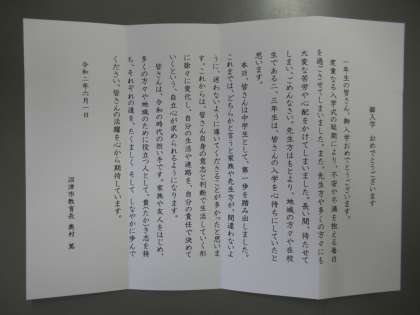 御入学 おめでとうございます
一年生の皆さん、御入学おめでとうございます。
度重なる入学式の延期により、不安や不満を抱える毎日
を過ごさせてしまいました。また、先生方や多くの方々にも
大変な苦労や心配をかけてしまいました。長い間、待たせて
しまい、ごめんなさい。先生方はもとより、地域の方々や在校
生である二、三年生は、皆さんの入学を心待ちにしていたと
思います。
本日、皆さんは中学生として、第一歩を踏み出しました。
これまでは、どちらかと言うと家族や先生方が、間違わないよ
うに、迷わないように導いてくださることが多かったと思いま
す。これからは、皆さん自身の意志と判断で生活していく形
に徐々に変化し、自分の生活や進路を、自分の責任で決めて
いくという、自立心が求められるようになります。
皆さんは、令和の時代の担い手です。家族や友人をはじめ、
多くの方々や地域のために役立つ人として、貴くたかき志を持
ち、それぞれの道を、たくましく、そして、しなやかに歩んで
ください。皆さんの活躍を心から期待しています。
令和二年六月一日
沼津市教育長 奥村 篤